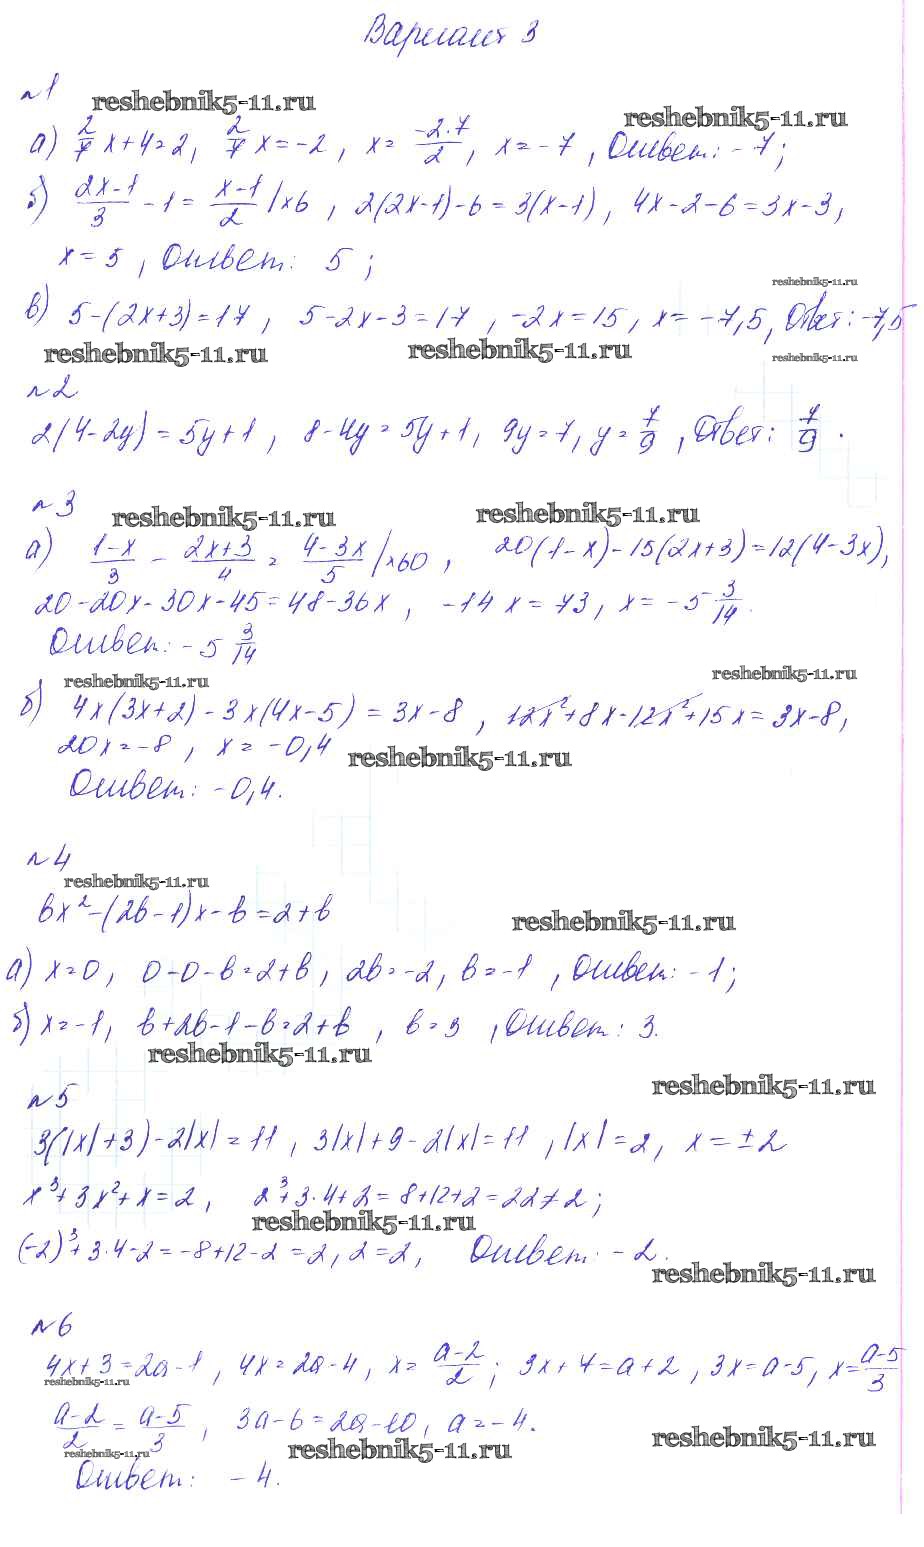 Вариант 3
№1
reshebnik5-11.ru
reshebnik5-11.ru
а) 2/7 x + 4 = 2, 2/7 x = -2, x = -2·7/2, x = -7, Ответ: -7;
б) 2x-1/3 - 1 = x-1/2 |×6, 2(2x-1)-6=3(x-1), 4x-2-6=3x-3,
x = 5, Ответ: 5;
reshebnik5-11.ru
в) 5-(2x+3)=17, 5-2x-3=17, -2x=15, x=-7,5, Ответ: -7,5
reshebnik5-11.ru reshebnik5-11.ru reshebnik5-11.ru
№2
2(4-2y)=5y+1, 8-4y=5y+1, 9y=7, y=7/9, Ответ: 7/9.
№3
reshebnik5-11.ru reshebnik5-11.ru
а) 1-x/3 - 2x+3/4 = 4-3x/5 |×60, 20(1-x)-15(2x+3)=12(4-3x),
20-20x-30x-45=48-36x, -14x=73, x=-5 3/14.
Ответ: -5 3/14
reshebnik5-11.ru reshebnik5-11.ru
б) 4x(3x+2)-3x(4x-5)=3x-8, 12x²+8x-12x²+15x=3x-8,
20x=-8, x=-0,4
reshebnik5-11.ru
Ответ: -0,4.
№4
reshebnik5-11.ru
bx²-(2b-1)x-b=2+b
reshebnik5-11.ru
а) x=0, 0-0-b=2+b, 2b=-2, b=-1, Ответ: -1;
б) x=-1, b+2b-1-b=2+b, b=3, Ответ: 3.
reshebnik5-11.ru
reshebnik5-11.ru
№5
3(|x|+3)-2|x|=11, 3|x|+9-2|x|=11, |x|=2, x=±2
x³+3x²+x=2, 2³+3·4+2=8+12+2=22≠2;
reshebnik5-11.ru
(-2)³+3·4-2=-8+12-2=2, 2=2, Ответ: -2.
reshebnik5-11.ru
№6
4x+3=2a-1, 4x=2a-4, x=a-2/2; 3x+4=a+2, 3x=a-5, x=a-5/3
reshebnik5-11.ru
a-2/2 = a-5/3, 3a-6=2a-10, a=-4.
reshebnik5-11.ru reshebnik5-11.ru reshebnik5-11.ru
Ответ: -4.